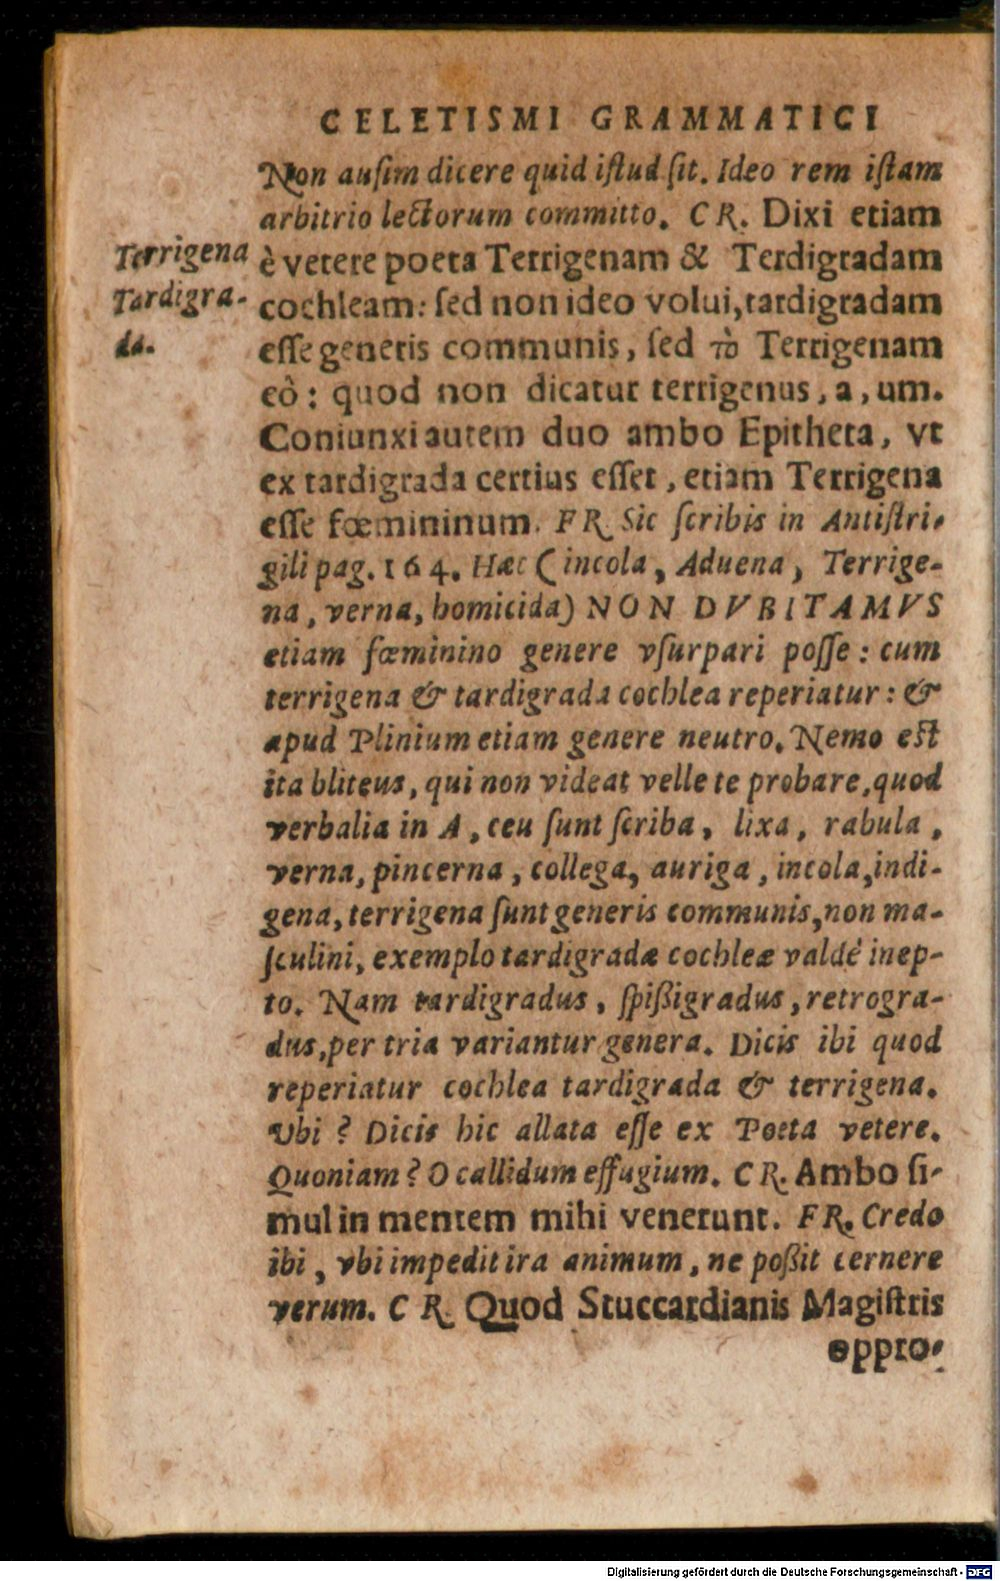 CELETISMI GRAMMATICI
Non auſim dicere quid iſtud ſit. Ideo rem iſtam
arbitrio lectorum committo. CR. Dixi etiam
Terrigena
è vetere poeta Terrigenam & Terdigradam
Tardigra-
cochleam: ſed non ideo volui, tardigradam
da.
eſſe generis communis, ſed τὸ Terrigenam
eò: quod non dicatur terrigenus, a, um.
Coniunxi autem duo ambo Epitheta, vt
ex tardigrada certius eſſet, etiam Terrigena
eſſe fœmininum. FR. Sic ſcribis in Antiſtri-
gili pag. 164. Hæc (incola, Aduena, Terrige-
na, verna, homicida) NON DVBITAMVS
etiam fœminino genere vſurpari poſſe: cum
terrigena & tardigrada cochlea reperiatur: &
apud Plinium etiam genere neutro. Nemo est
ita bliteus, qui non videat velle te probare, quod
verbalia in A, ceu ſunt ſcriba, lixa, rabula,
verna, pincerna, collega, auriga, incola, indi-
gena, terrigena ſunt generis communis, non ma-
ſculini, exemplo tardigradæ cochleæ valdè inep-
to. Nam tardigradus, ſpißigradus, retrogra-
dus, per tria variantur genera. Dicis ibi quod
reperiatur cochlea tardigrada & terrigena.
Vbi? Dicis hic allata eſſe ex Poeta vetere.
Quoniam? O callidum effugium. CR. Ambo ſi-
mul in mentem mihi venerunt. FR. Credo
ibi, vbi impedit ira animum, ne poßit cernere
verum. CR. Quod Stuccardianis Magiſtris
oppro-
Digitalisierung gefördert durch die Deutsche Forschungsgemeinschaft - DFG